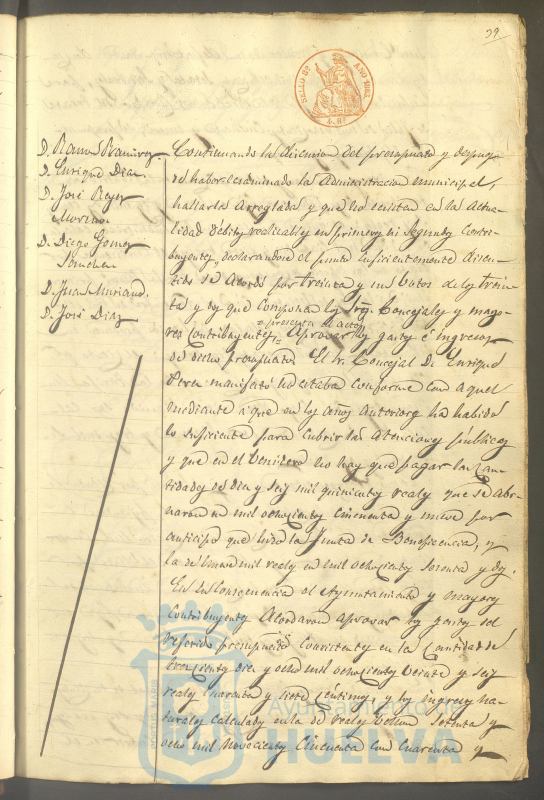 39
SELLO 9º AÑO 1862
D. Ramon Ramirez
D. Enrique Diaz
D. José Reyes
Moreno
D. Diego Gomez
Sanchez
D. Juan Muriano.
D. José Diaz
Continuando la discusion del presupuesto y despues
de haber examinado la Administracion municipal,
hallarlos Arreglados y que no existen en las Actua-
lidad Debitos realizables en primeros ni segundos Contri-
buyentes, declarandose el punto suficientemente discu-
tido se Acordó por treinta y un botos de los trein-
ta y dos que componen los Srs. Concejales y mayo-
res Contribuyentes Aprovar los gastos é ingresos
de dicho presupuesto. El Sr. Concejal Dn. Enrique
Perez manifestó no estaba conforme con aquel
mediante á que en los años anteriores ha habido
lo suficiente para cubrir las Atenciones públicas
y que en el benidero no hay que pagar las Can-
tidades de diez y seis mil quinientos reales que se abo-
naron en mil ochocientos cincuenta y nueve por
anticipo que hizo la Junta de Beneficencia, y
la de mil reales en mil ochocientos sesenta y dos.
En su consecuencia el Ayuntamiento y mayores
Contribuyentes Acordaron Aprovar los gastos del
referido presupuesto consistentes en la Cantidad de
trescientos diez y ocho mil ochocientos veinte y seis
reales cuarenta y siete céntimos, y los ingresos na-
turales Calculados en la de reales vellon setenta y
ocho mil novecientos cincuenta con cuarenta y
Ayuntamiento de
HUELVA